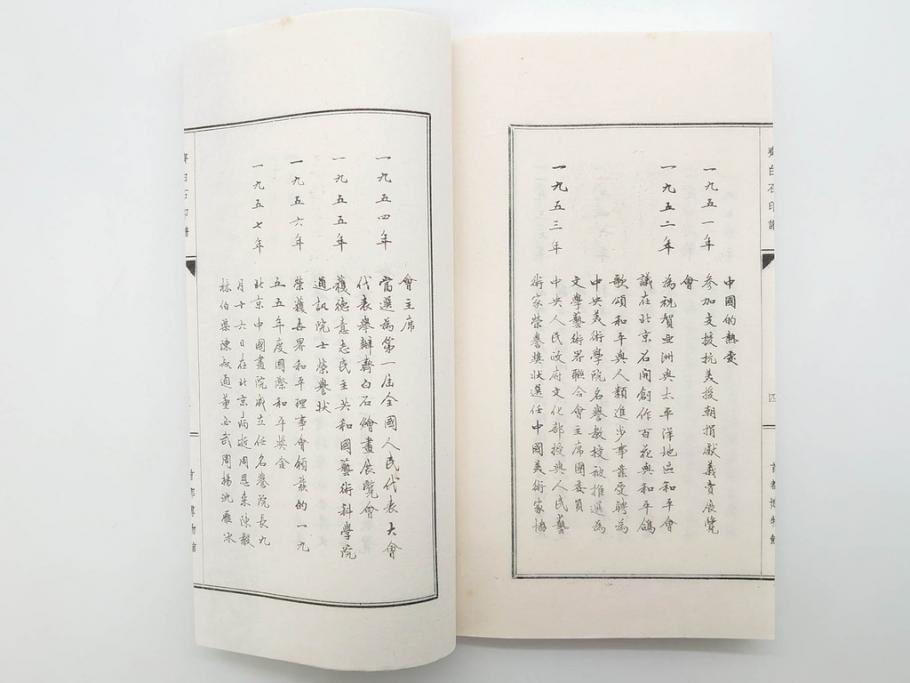 齊白石印譜
四
首都博物館
中國的熱愛
一九五一年 參加支援抗美援朝捐獻義賣展覽
會
一九五二年 為祝賀亞洲與太平洋地區和平會
議在北京召開創作百花與和平鴿
歌頌和平與人類進步事業受聘為
中央美術學院名譽教授被推選為
文學藝術界聯合會主席團委員
一九五三年 中央人民政府文化部授與人民藝
術家榮譽獎狀選任中國美術家協
會主席
一九五四年 當選為第一屆全國人民代表大會
代表舉辦齊白石繪畫展覽會
一九五五年 獲德意志民主共和國藝術科學院
通訊院士榮譽狀
一九五六年 榮獲世界和平理事會頒發的一九
五五年度國際和平獎金
一九五七年 北京中國畫院成立任名譽院長九
月十六日在北京病逝周恩來陳毅
林伯渠陳叔通董必武周揚沈雁冰
齊白石印譜
首都博物館